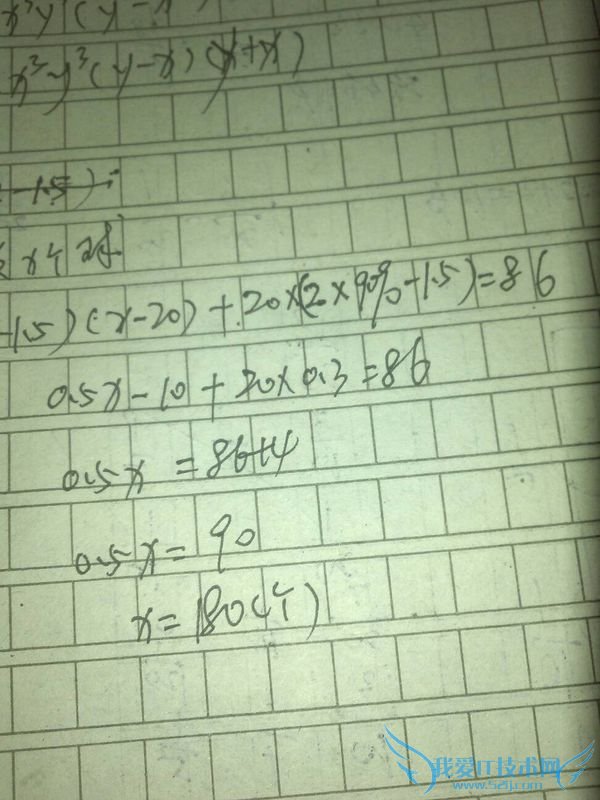 x³y(y-
x³y³(y-x)(y+x)
-1.5)÷
x个球
-1.5)(x-20)+20×(2×90%-1.5)=86
0.5x-10+20×0.3=86
0.5x=86+4
0.5x=90
x=180(个)
我爱IT技术网
www.52ij.com